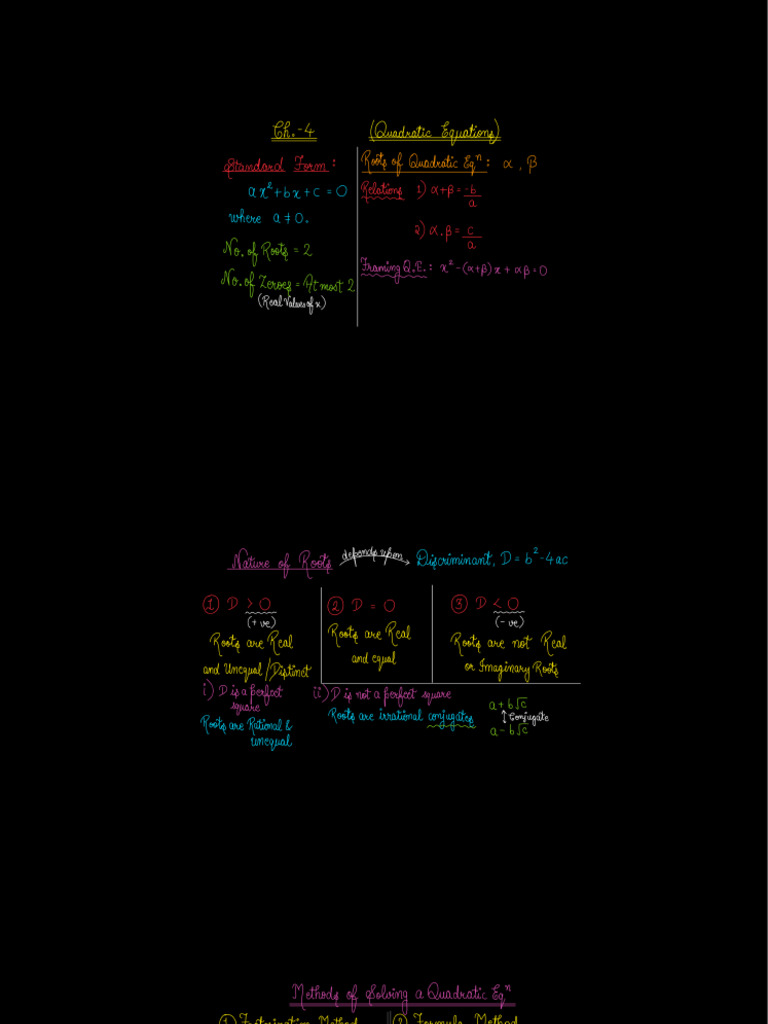 Ch.-4 (Quadratic Equations)
Standard Form :
ax²+bx+c = 0
where a ≠ 0.
No. of Roots = 2
No. of Zeroes = Atmost 2
(Real Values of x)
Roots of Quadratic Eqⁿ : α , β
Relations 1) α+β = -b/a
2) α.β = c/a
Framing Q.E. : x²-(α+β)x + αβ = 0
Nature of Roots depends upon Discriminant, D = b²-4ac
① D > 0
(+ ve)
Roots are Real
and Unequal/Distinct
② D = 0
Roots are Real
and equal
③ D < 0
(- ve)
Roots are not Real
or Imaginary Roots
i) D is a perfect
square
Roots are Rational &
unequal
ii) D is not a perfect square
Roots are irrational conjugates
a+b√c
↕ Conjugate
a-b√c
Methods of Solving a Quadratic Eqⁿ
① Factorisation Method ② Formula Method